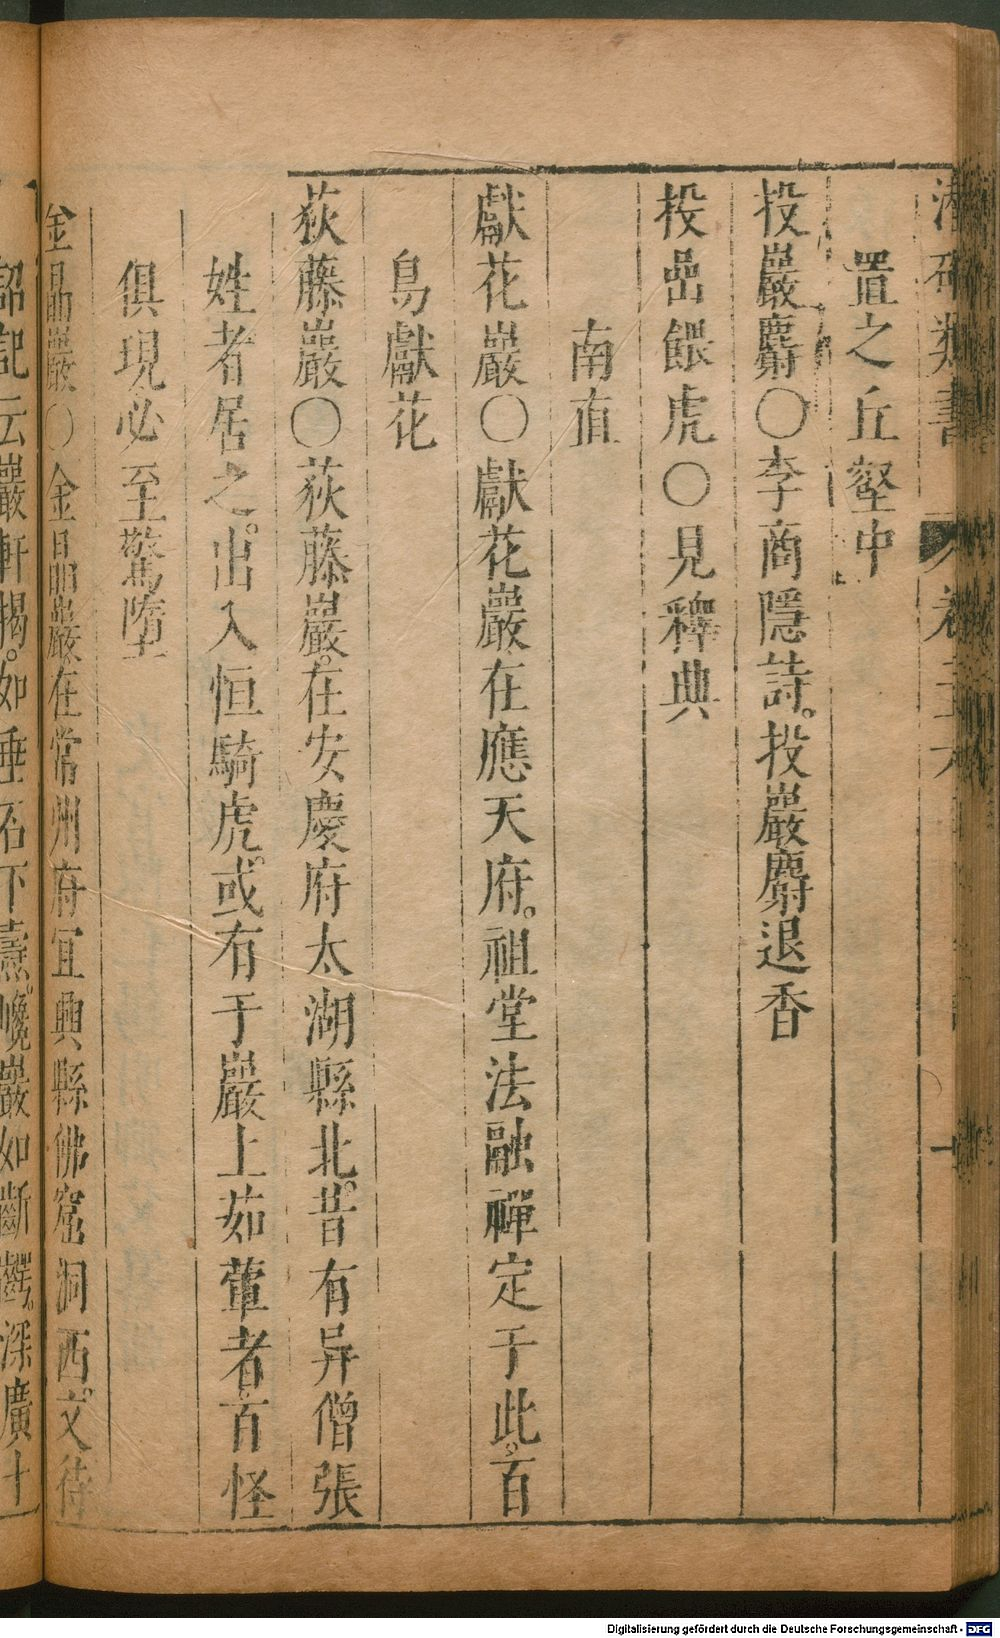 潛確類書 卷二十六 十
置之丘壑中
投巖麝〇李商隱詩。投巖麝退香
投嵓餵虎〇見釋典
南直
獻花巖〇獻花巖在應天府。祖堂法融禪定于此。百
鳥獻花
荻藤巖〇荻藤巖。在安慶府太湖縣北。昔有异僧張
姓者居之。出入恒騎虎。或有于巖上茹葷者。百怪
俱現必至驚墮
金晶巖〇金晶巖在常州府宜興縣佛窟洞西。文待
詔記云巖軒揭。如垂石下

巖如斷齶。深廣十
Digitalisierung gefördert durch die Deutsche Forschungsgemeinschaft - DFG